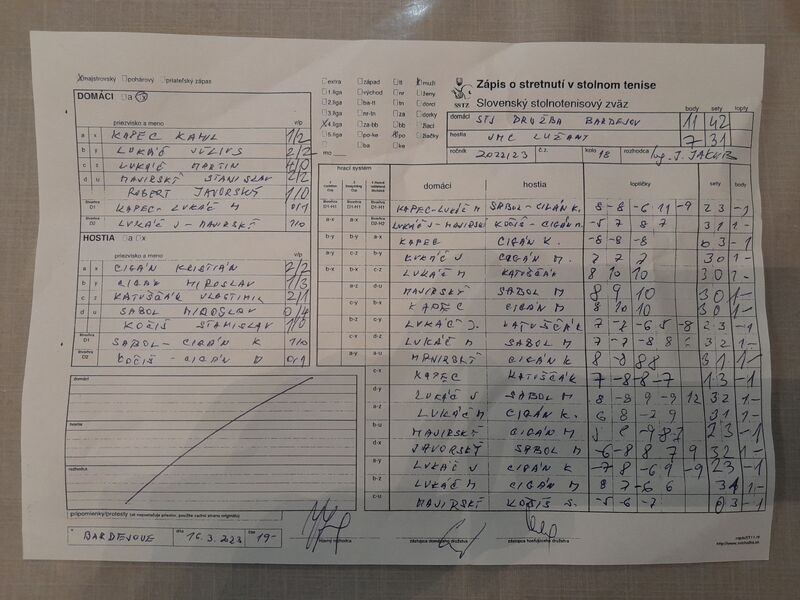 majstrovský pohárový priateľský zápas
DOMÁCI a
priezvisko a meno v/p
a x KAPEC KAMIL 1/2
b y LUKÁČ JÚLIUS 2/2
c z LUKÁČ MARTIN 4/0
d u MAJIRSKÝ STANISLAV 2/2
ROBERT JAVORSKÝ 1/0
štvorhra D1 KAPEC-LUKÁČ M 0/1
štvorhra D2 LUKÁČ J - MAJIRSKÝ 1/0
HOSTIA a x
priezvisko a meno v/p
a x CIGÁN KRISTIÁN 2/2
b y CIGÁN MIROSLAV 1/3
c z KATUŠČÁK VLASTIMIL 2/1
d u SABOL MIROSLAV 0/4
KOČIŠ STANISLAV 1/0
štvorhra D1 SABOL - CIGÁN K 1/0
štvorhra D2 KOČIŠ - CIGÁN M 0/1
domáci
hostia
rozhodca
pripomienky/protesty
BARDEJOVE dňa 16.3.2023 čas 19-
extra západ tt muži
1.liga východ nr ženy
2.liga ba-tt tn dorci
3.liga nr-tn za dorky
4.liga za-bb bb žiaci
5.liga po-ke po žiačky
ba ke
mo
SSTZ
Zápis o stretnutí v stolnom tenise
Slovenský stolnotenisový zväz
body sety lopty
domáci STJ DRUŽBA BARDEJOV 11 42
hostia JMC LUŽANY 7 31
ročník 2022/23 č.z. kolo 18 rozhodca Ing. J. JAKUB
hrací systém
domáci hostia loptičky sety body
KAPEC-LUKÁČ M SABOL-CIGÁN K. 8 -8 -6 11 -9 2 3 -1
LUKÁČ J-MAJIRSKÝ KOČIŠ-CIGÁN M. -5 7 8 7 3 1 1-
KAPEC CIGÁN K. -8 -8 -8 0 3 -1
LUKÁČ J CIGÁN M. 7 7 7 3 0 1-
LUKÁČ M KATUŠČÁK 8 10 10 3 0 1-
MAJIRSKÝ SABOL M 8 9 10 3 0 1-
KAPEC CIGÁN M 8 10 10 3 0 1-
LUKÁČ J. KATUŠČÁK 7 -7 -6 5 -8 2 3 -1
LUKÁČ M SABOL M 7 -7 -8 8 3 2 1-
MAJIRSKÝ CIGÁN K 8 -8 8 8 3 1 1-
KAPEC KATUŠČÁK 7 -8 -8 -7 1 3 -1
LUKÁČ J SABOL M 8 -8 9 -9 12 3 2 1-
LUKÁČ M CIGÁN K. 6 8 -7 9 3 1 1-
MAJIRSKÝ CIGÁN M 2 3 -1
JAVORSKÝ SABOL M -6 -8 8 7 9 3 2 1-
LUKÁČ J CIGÁN K -7 8 -6 9 -9 2 3 -1
LUKÁČ M CIGÁN M 8 7 -6 6 3 1 1-
MAJIRSKÝ KOČIŠ S. -5 -6 -7 0 3 -1
hlavný rozhodca zástupca domáceho družstva zástupca hosťujúceho družstva